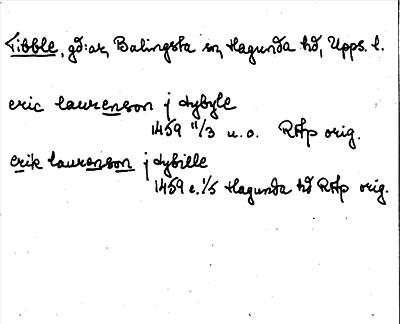 Tibble, gd:ar, Balingsta sn, Hagunda hd, Upps. l.
eric laurenson j dybyle
1459 11/3 u. o. RAp orig.
erik laurenson j dybille
1459 e. 1/5 Hagunda hd RAp orig.